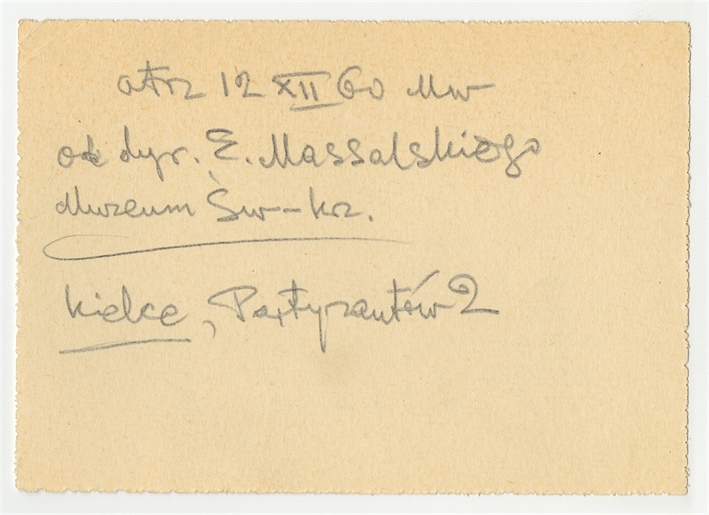 otrz 12 XII 60 Mw
od dyr. E. Massalskiego
Muzeum Św-krz.
Kielce, Partyzantów 2